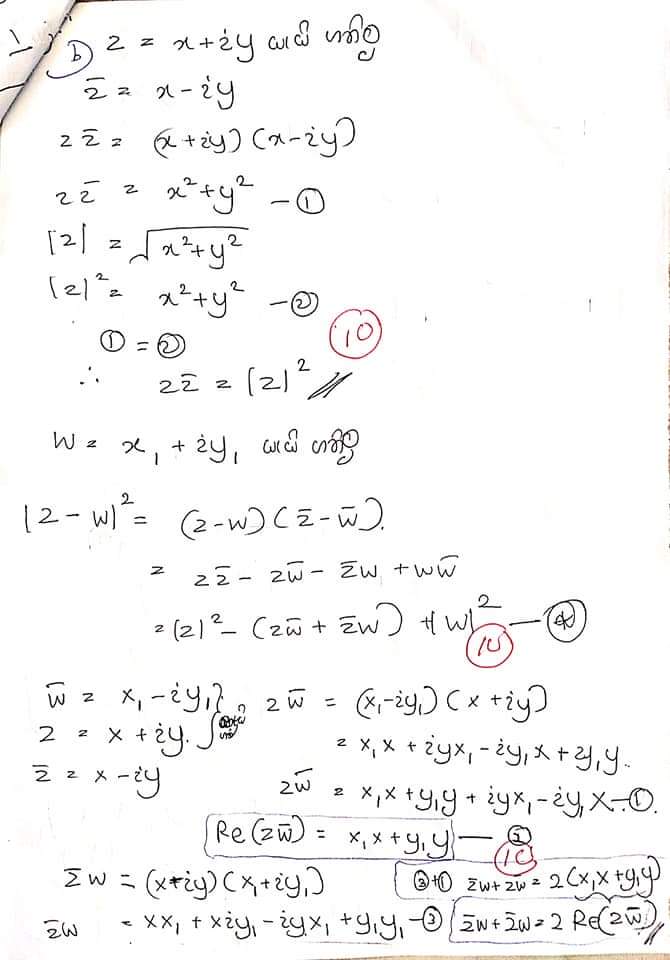 b) z = x + iy යැයි ගනිමු
z̄ = x - iy
z z̄ = (x + iy) (x - iy)
z z̄ = x² + y² - ①
|z| = √x² + y²
|z|² = x² + y² - ②
① = ②
10
∴ z z̄ = |z|² //
W = x₁ + iy₁ යැයි ගනිමු
|z - w|² = (z - w) ( z̄ - w̄ ).
= z z̄ - z w̄ - z̄ w + w w̄
= |z|² - (z w̄ + z̄ w) + |w|² - ④
10
w̄ = x₁ - iy₁ }
z = x + iy.
z̄ = x - iy
z w̄ = (x₁ - iy₁) ( x + iy)
= x₁x + iyx₁ - iy₁x + y₁y.
z w̄ = x₁x + y₁y + iyx₁ - iy₁x - ①
Re(z w̄) = x₁x + y₁y - ②
10
z̄ w = (x - iy) (x₁ + iy₁)
③+① z̄w + zw = 2(x₁x + y₁y)
z̄w = xx₁ + xiy₁ - iyx₁ + y₁y₁ - ③
z̄w + z̄w = 2 Re(z w̄) //